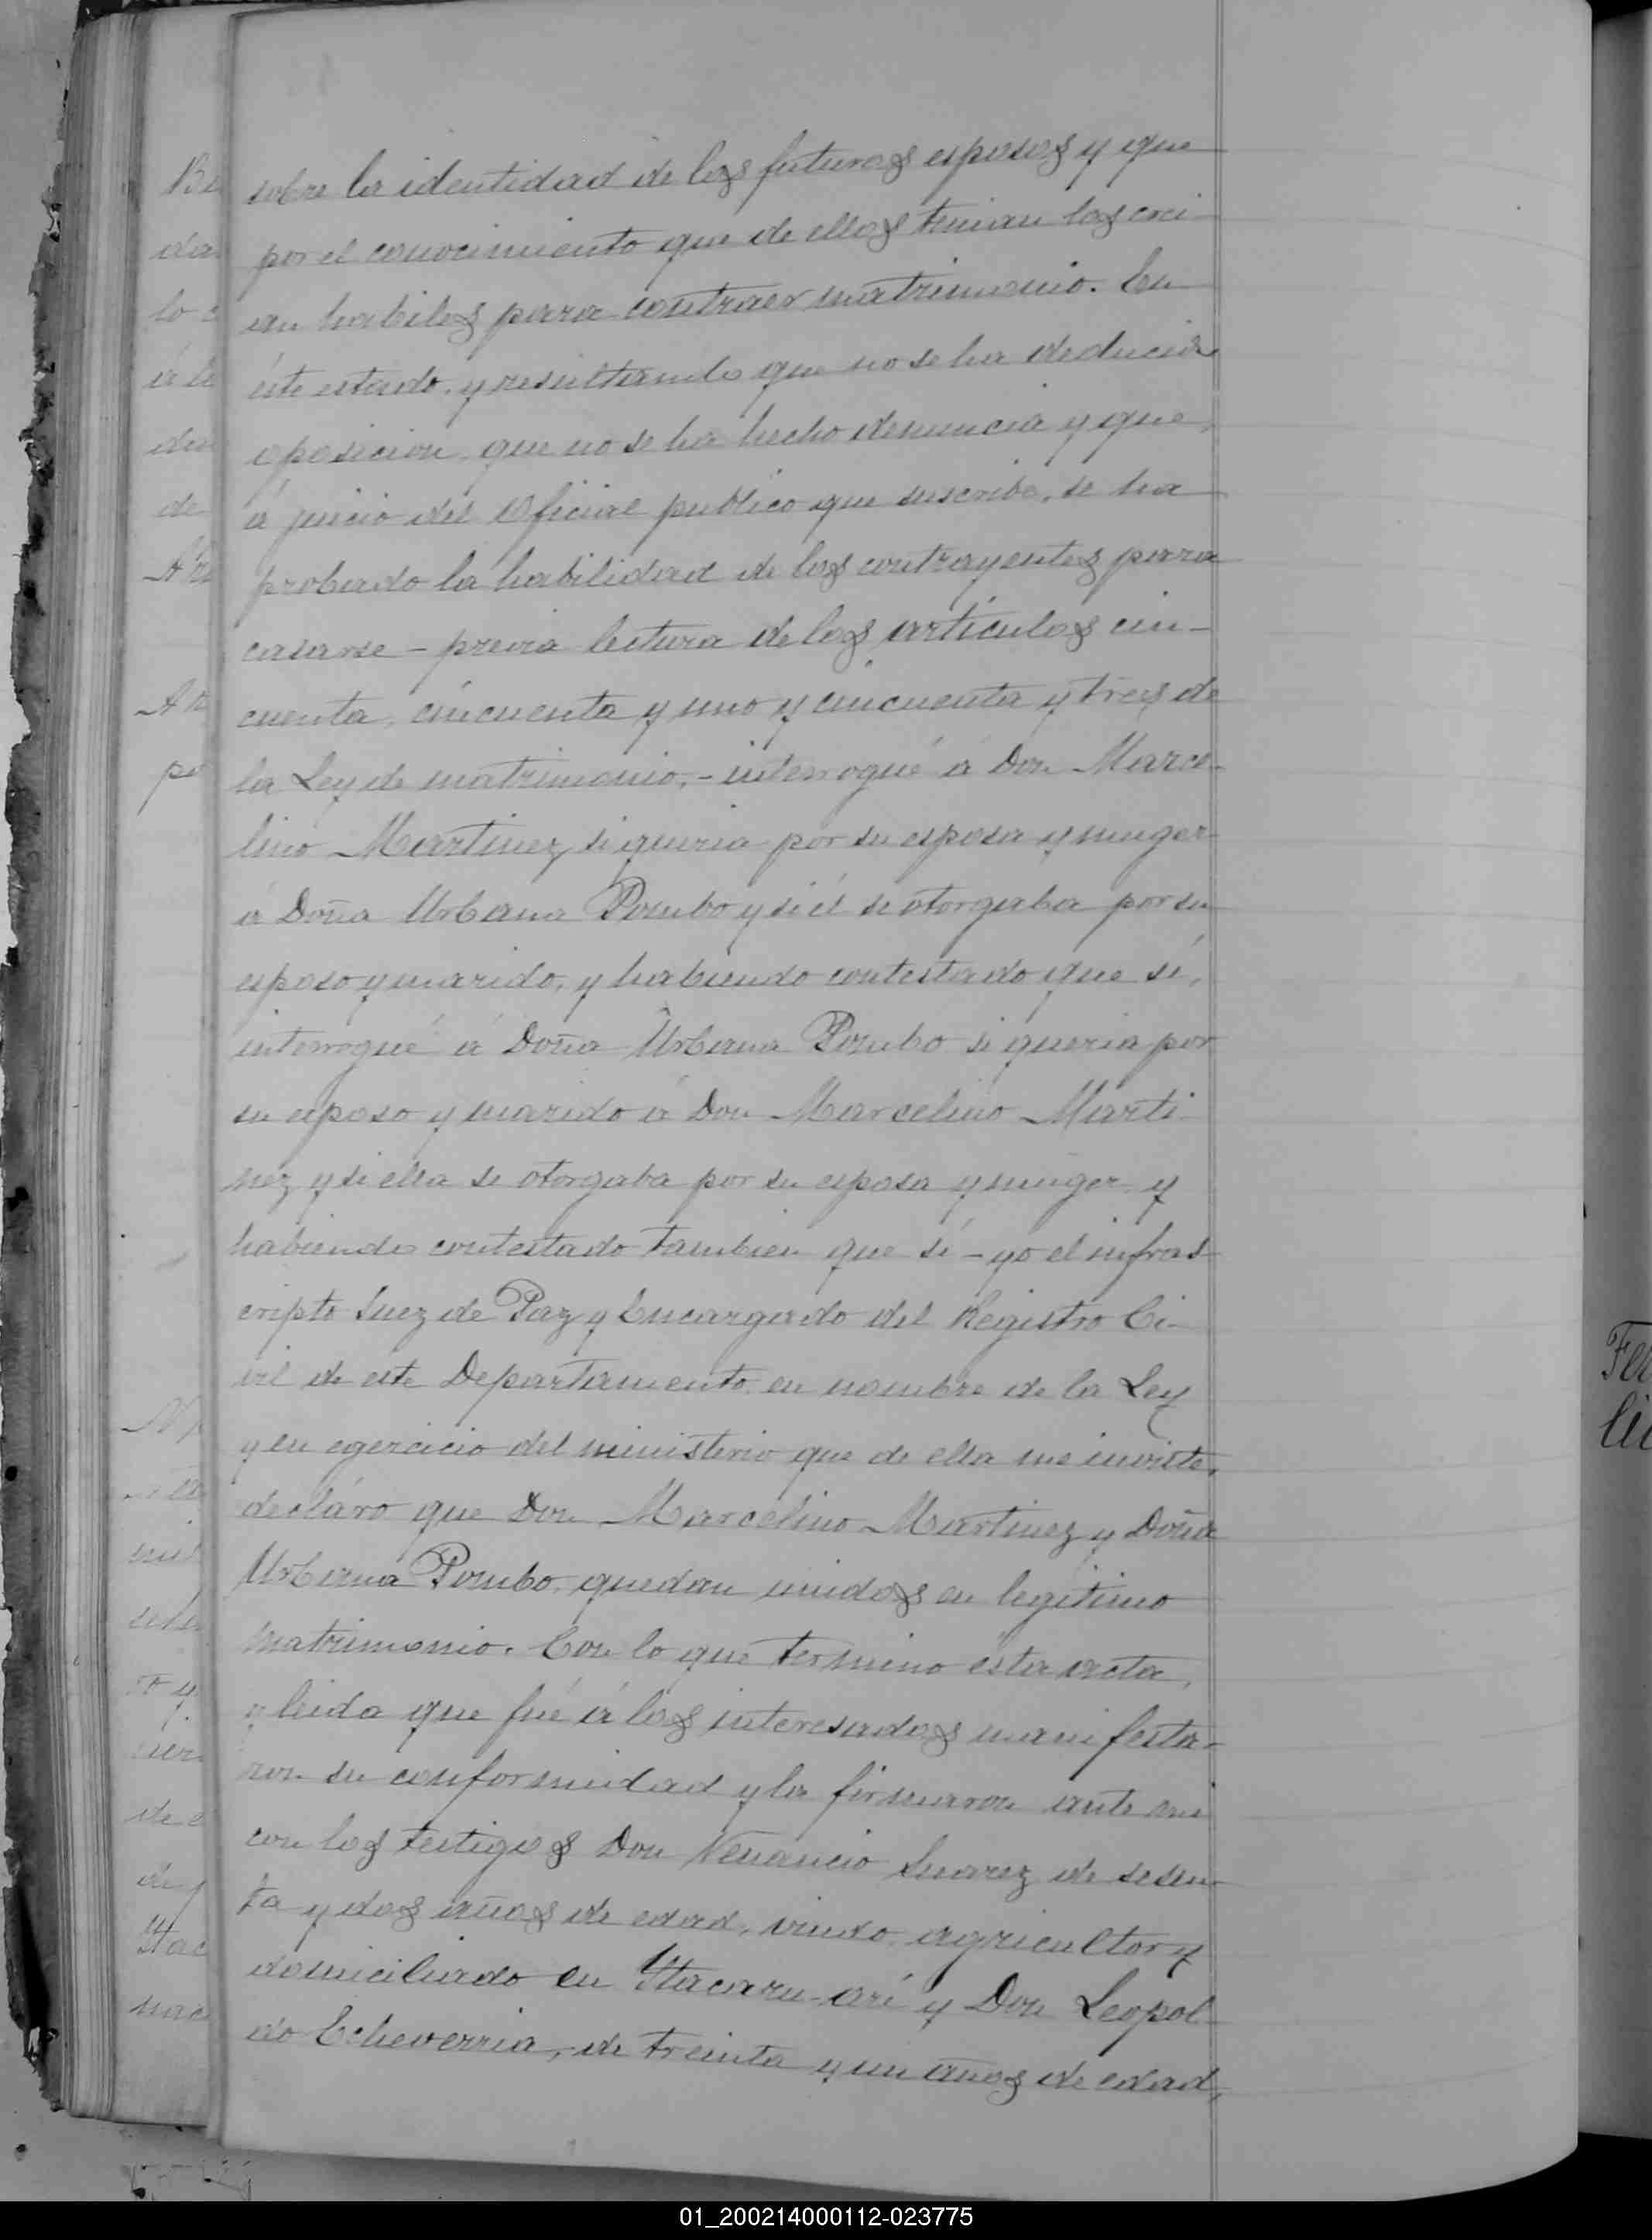 sobre la identidad de los futuros esposos y que
por el conocimiento que de ellos tenian los crei-
an habiles para contraer matrimonio. En
éste estado, y resultando que no se ha deducido
oposicion, que no se ha hecho denuncia y que,
á juicio del Oficial publico que suscribe, se ha
probado la habilidad de los contrayentes para
casarse - previa lectura de los artículos cin-
cuenta, cincuenta y uno y cincuenta y tres de
la Ley de matrimonio, - interrogué á Don Marce-
lino Martinez, si queria por su esposa y muger
á Doña Urbana Pombo y si él se otorgaba por su
esposo y marido, y habiendo contestado que sí,
interrogué á Doña Urbana Pombo si queria por
su esposo y marido á Don Marcelino Marti-
nez y si ella se otorgaba por su esposa y muger y
habiendo contestado tambien que sí - yo el infras-
cripto Juez de Paz y Encargado del Registro Ci-
vil de este Departamento en nombre de la Ley
y en egercicio del ministerio que de ella me inviste,
decláro que Don Marcelino Martinez y Doña
Urbana Pombo, quedan unidos en legítimo
matrimonio. Con lo que terminó ésta acta,
y leida que fué á los interesados manifesta-
ron su conformidad y la firmaron ante mi
con los testigos Don Venancio Suarez de sesen-
ta y dos años de edad, viudo, agricultor y
domiciliado en Itacaru-aré y Don Leopol-
do Echeverria, de treinta y un años de edad,
01_200214000112-023775